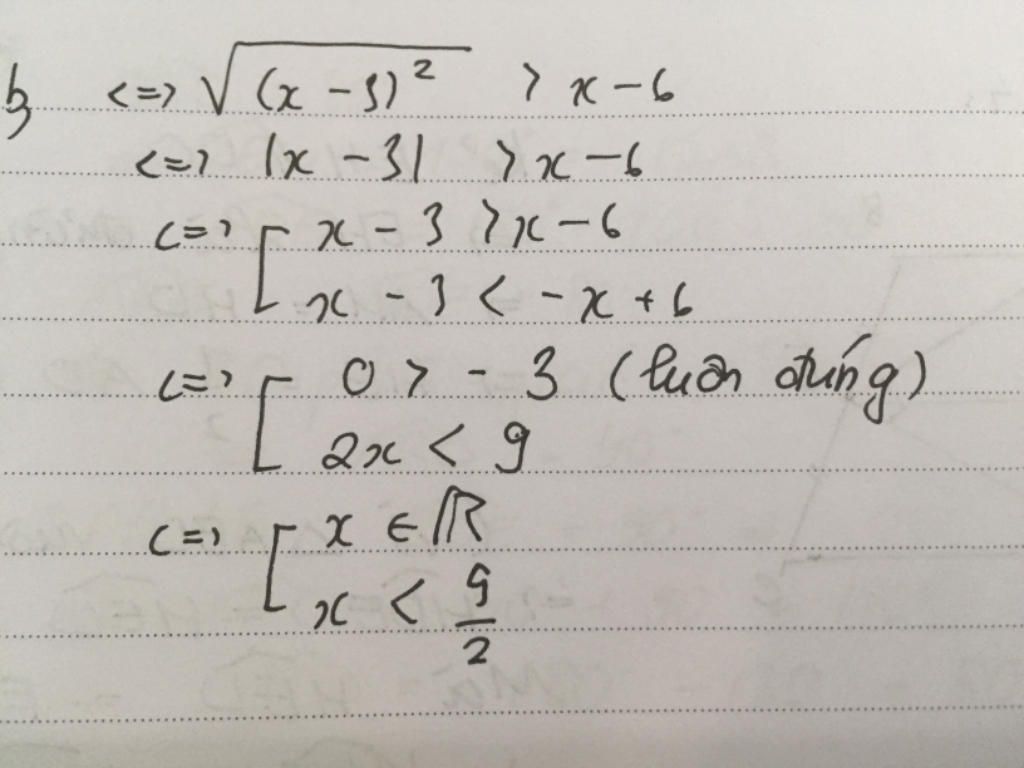 b) <=> √(x - 3)² > x - 6
<=> |x - 3| > x - 6
<=> [ x - 3 > x - 6
x - 3 < - x + 6
<=> [ 0 > - 3 (luôn đúng)
2x < 9
<=> [ x ∈ ℝ
x < 9/2